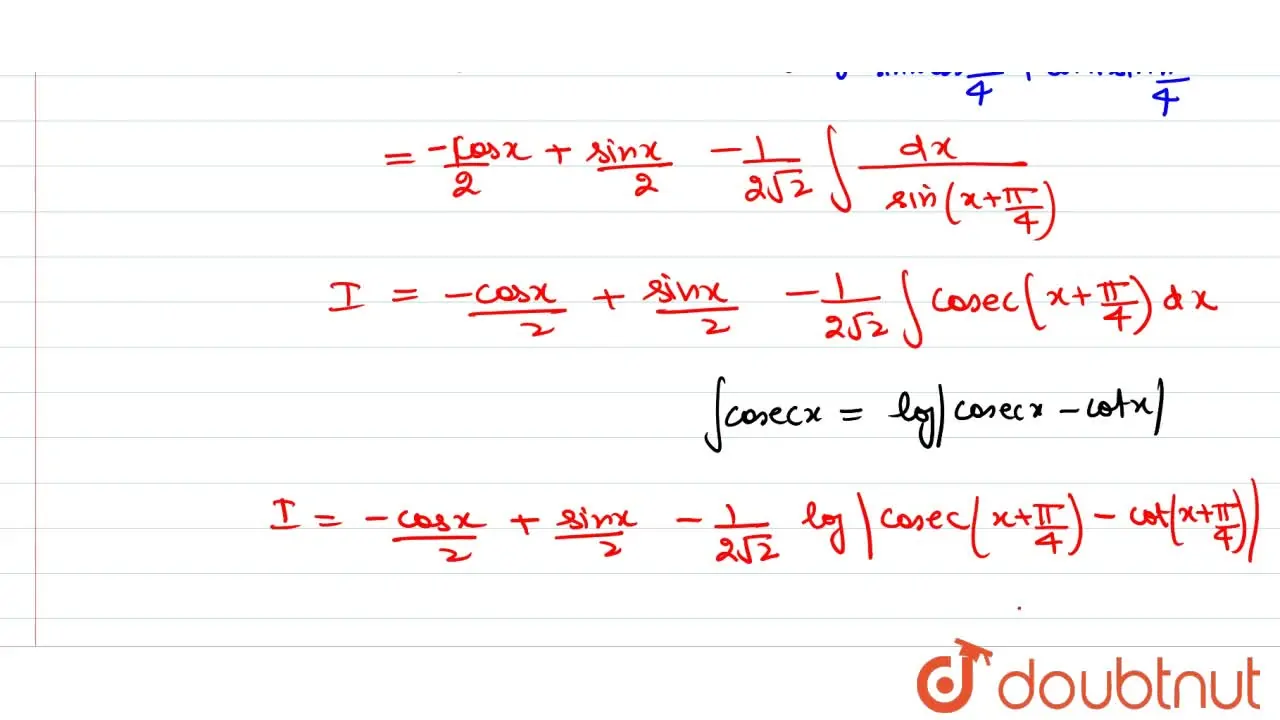 π/4 π/4
= -cosx/2 + sinx/2 - 1/2√2 ∫ dx/sin(x+π/4)
I = -cosx/2 + sinx/2 - 1/2√2 ∫ cosec(x+π/4) dx
∫cosecx = log|cosecx - cotx|
I = -cosx/2 + sinx/2 - 1/2√2 log|cosec(x+π/4) - cot(x+π/4)|
doubtnut